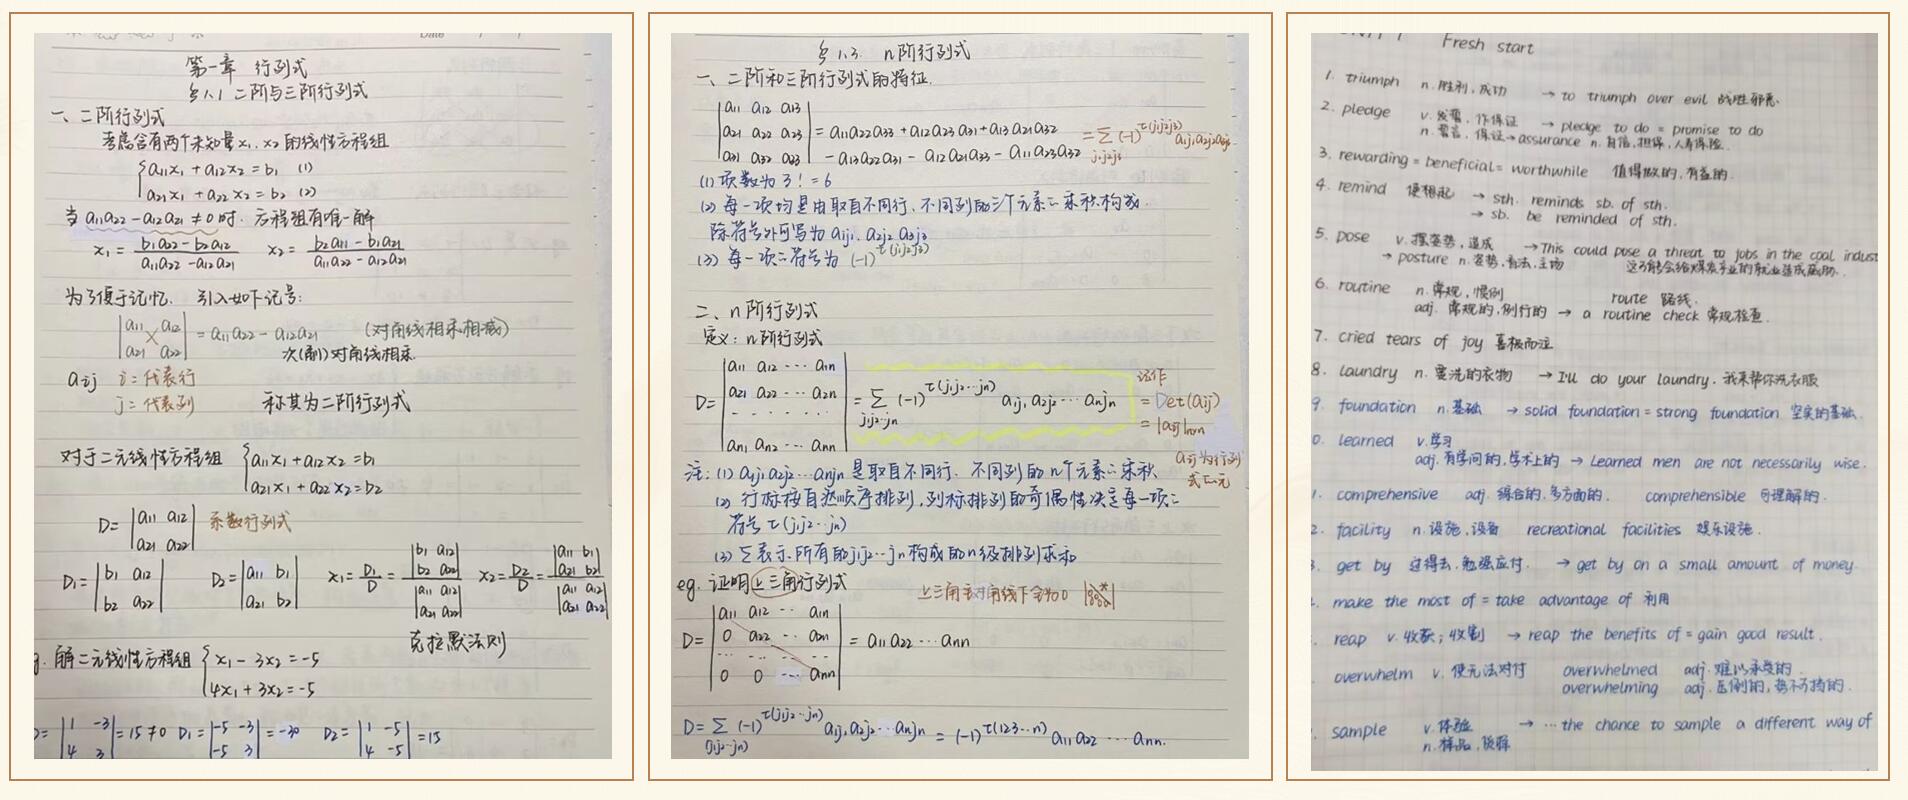 第一章 行列式
§1.1 二阶与三阶行列式
一、二阶行列式
考虑含有两个未知量x₁,x₂的线性方程组
{a₁₁x₁+a₁₂x₂=b₁ (1)
a₂₁x₁+a₂₂x₂=b₂ (2)
当a₁₁a₂₂-a₁₂a₂₁≠0时,方程组有唯一解
x₁=(b₁a₂₂-b₂a₁₂)/(a₁₁a₂₂-a₁₂a₂₁) x₂=(b₂a₁₁-b₁a₂₁)/(a₁₁a₂₂-a₁₂a₂₁)
为了便于记忆, 引入如下记号:
|a₁₁ a₁₂|
|a₂₁ a₂₂| =a₁₁a₂₂-a₁₂a₂₁ (对角线相乘相减)
次(副)对角线相乘
aij i=代表行
j=代表列 称其为二阶行列式
对于二元线性方程组 {a₁₁x₁+a₁₂x₂=b₁
a₂₁x₁+a₂₂x₂=b₂
D= |a₁₁ a₁₂| 系数行列式
|a₂₁ a₂₂|
D₁= |b₁ a₁₂| D₂= |a₁₁ b₁| x₁=D₁/D= |b₁ a₁₂| / |a₁₁ a₁₂| x₂=D₂/D= |a₁₁ b₁| / |a₁₁ a₁₂|
|b₂ a₂₂| |a₂₁ b₂| |b₂ a₂₂| / |a₂₁ a₂₂| |a₂₁ b₂| / |a₂₁ a₂₂|
克拉默法则
解二元线性方程组 {x₁-3x₂=-5
4x₁+3x₂=-5
|1 -3| =15≠0 D₁= |-5 -3| =-30 D₂= |1 -5| =15
|4 3| |-5 3| |4 -5|
§1.3 n阶行列式
一、二阶和三阶行列式的特征.
|a₁₁ a₁₂ a₁₃|
|a₂₁ a₂₂ a₂₃| =a₁₁a₂₂a₃₃+a₁₂a₂₃a₃₁+a₁₃a₂₁a₃₂ =∑(-1)^τ(j₁j₂j₃) a₁j₁a₂j₂a₃j₃
|a₃₁ a₃₂ a₃₃| -a₁₃a₂₂a₃₁-a₁₂a₂₁a₃₃-a₁₁a₂₃a₃₂ j₁j₂j₃
(1)项数为3!=6
(2)每一项均是由取自不同行、不同列的三个元素之乘积构成.
除符号外可写为a₁j₁,a₂j₂ a₃j₃
(3)每一项之符号为 (-1)^τ(j₁j₂j₃)
二、n阶行列式
定义: n阶行列式
|a₁₁ a₁₂ ··· a₁n|
D= |a₂₁ a₂₂ ··· a₂n| =∑(-1)^τ(j₁j₂···jn) a₁j₁a₂j₂···anjn 记作 =Det(aij)
j₁j₂···jn =|aij|n×n
|an₁ an₂ ··· ann|
aij为行列式之元
注:(1) a₁j₁a₂j₂···anjn是取自不同行、不同列的n个元素之乘积
(2) 行标按自然顺序排列,列标排列的奇偶性决定每一项之
符号τ(j₁j₂···jn)
(3) ∑表示所有的j₁j₂···jn构成的n级排列求和
eg. 证明上三角行列式 上三角主对角线下全为0
|a₁₁ a₁₂ ·· a₁n|
D= |0 a₂₂ ·· a₂n| =a₁₁a₂₂···ann
|0 0 ··· ann|
D=∑(-1)^τ(j₁j₂···jn) a₁j₁a₂j₂···anjn=(-1)^τ(123···n) a₁₁a₂₂···ann.
(j₁j₂···jn)
Fresh start
1. triumph n.胜利,成功 → to triumph over evil 战胜邪恶.
2. pledge v.发誓,作保证 → pledge to do = promise to do
n.誓言,保证→assurance n.自信,担保,人寿保险.
3. rewarding = beneficial = worthwhile 值得做的,有益的.
4. remind 使想起 → sth. reminds sb. of sth.
→ sb. be reminded of sth.
5. pose v.摆姿势,造成 → This could pose a threat to jobs in the coal indust
→ posture n.姿势,看法,立场 这可能会给煤炭产业的就业造成威胁.
6. routine n.常规,惯例 route 路线.
adj.常规的,例行的 → a routine check 常规检查.
7. cried tears of joy 喜极而泣
8. laundry n.要洗的衣物 → I'll do your laundry.我来帮你洗衣服
9. foundation n.基础 → solid foundation = strong foundation 坚实的基础.
0. learned v.学习
adj.有学问的,学术上的 → Learned men are not necessarily wise.
comprehensive adj.综合的,多方面的. comprehensible 可理解的.
2. facility n.设施,设备 recreational facilities 娱乐设施.
get by 过得去,勉强应付. → get by on a small amount of money.
make the most of = take advantage of 利用
reap v.收获;收割 → reap the benefits of = gain good result.
overwhelm v.使无法对付 overwhelmed adj.难以承受的.
overwhelming adj.压倒的,势不可挡的.
sample v.体验 → ···the chance to sample a different way of
n.样品,货样